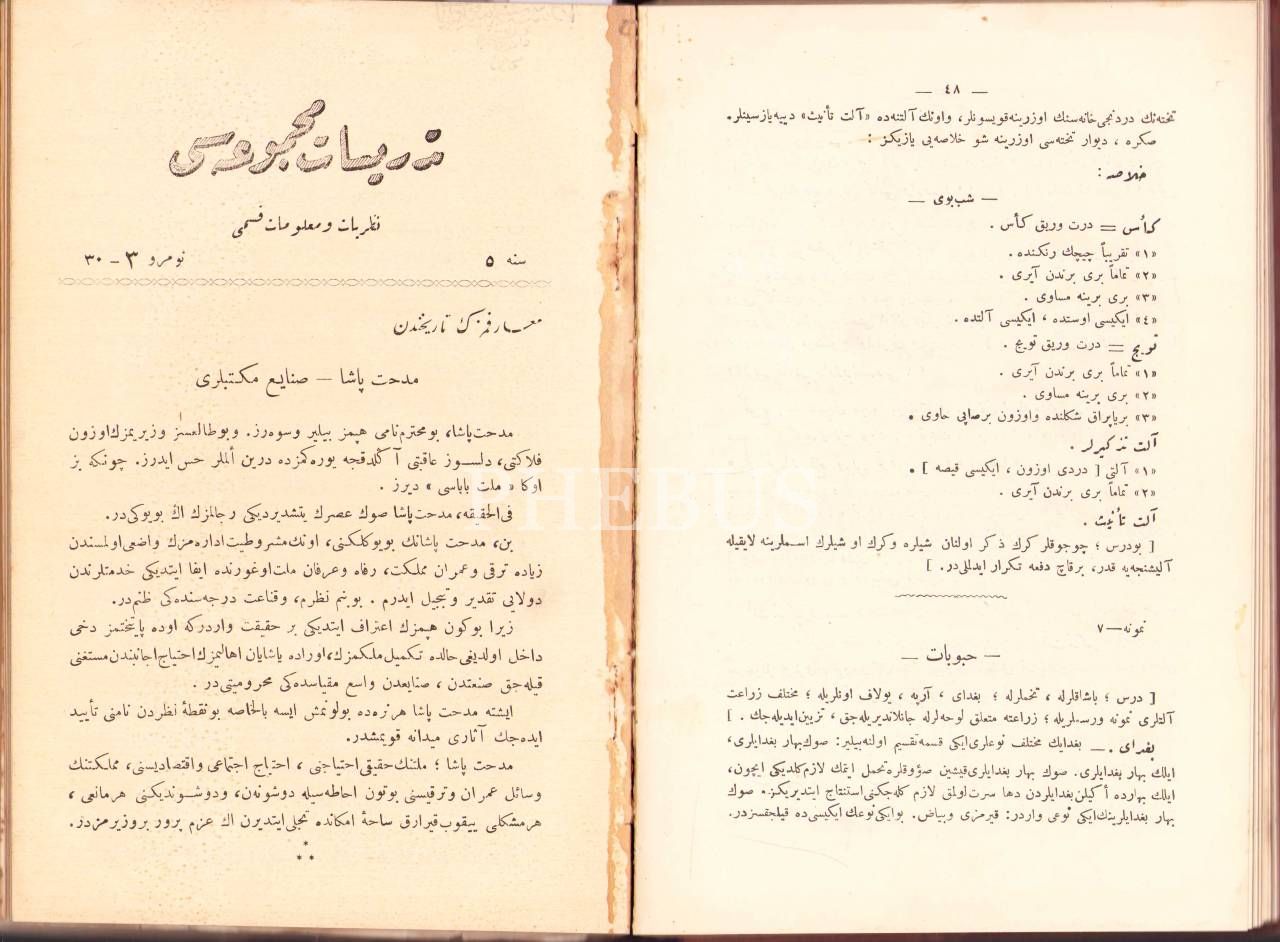 — ٤٨ —
تخته‌نك دردنجی خانه‌سنك اوزرینه قویسونلر، واونك آلتنه‌ده «آلت تأنیث» دییه یازسینلر.
صكره ، دیوار تخته‌سی اوزرینه شو خلاصه‌یی یازیكز :
خلاصه :
— شب‌بوی —
كأس = درت وریق كأس .
«١» تقریباً چیچك رنكنده .
«٢» تماماً بری برندن آیری .
«٣» بری برینه مساوی .
«٤» ایكیسی اوستده ، ایكیسی آلتده .
تویج = درت وریق تویج .
«١» تماماً بری برندن آیری .
«٢» بری برینه مساوی .
«٣» بریاپراق شكلنده واوزون برصاپی حاوی .
آلت تذكیرلر .
«١» آلتی [ دردی اوزون ، ایكیسی قیصه ] .
«٢» تماماً بری برندن آیری .
آلت تأنیث .
[ بودرس ؛ چوجوقلر كرك ذكر اولنان شیلره وكرك او شیلرك اسملرینه لایقیله
آلیشنجه‌یه قدر، برقاچ دفعه تكرار ایدللی‌در. ]
نمونه — ٧
— حبوبات —
[ درس ؛ باشاقلرله ، تخملرله ؛ بغدای ، آرپه ، یولاف اونلریله ؛ مختلف زراعت
آلتلری نمونه ورسملریله ؛ زراعته متعلق لوحه‌لرله جانلاندیریله‌جق ، تزیین ایدیله‌جك . ]
بغدای . — بغدایك مختلف نوعلری ایكی قسمه تقسیم اولنه‌بیلیر: صوك بهار بغدایلری،
ایلك بهار بغدایلری. صوك بهار بغدایلری قیشین صؤوقلره تحمل ایتمك لازم كلدیكی ایچون،
ایلك بهارده أكیلن بغدایلردن دها سرت اولمق لازم كله‌جكنی استنتاج ایتدیریكز. صوك
بهار بغدایلرینك ایكی نوعی واردر: قیرمزی وبیاض. بوایكی نوعك ایكیسی ده قیلچقسزدر.
تدریسات مجموعه‌سی
نظریات ومعلومات قسمی
سنه ٥ نومرو ٣ - ٣٠
معارفمزك تاریخندن
مدحت پاشا — صنایع مكتبلری
مدحت پاشا، بو محترم نامی هپمز بیلیر وسوه‌رز. وبوطالعسز وزیریمزك اوزون
فلاكتی، دلسوز عاقبتی آكلدقجه یوره‌كمزده درین ألملر حس ایدرز. چونكه بز
اوكا « ملت باباسی » دیرز .
فی الحقیقه، مدحت پاشا صوك عصرك یتشدیردیكی رجالمزك اك بویوكی‌در.
بن، مدحت پاشانك بویوكلكنی، اونك مشروطیت اداره‌مزك واضعی اولمسندن
زیاده ترقی وعمران مملكت، رفاه وعرفان ملت اوغورنده ایفا ایتدیكی خدمتلرندن
دولایی تقدیر وتبجیل ایدرم . بوبنم نظرم، وقناعت درجه‌سنده‌كی ظنم‌در.
زیرا بوكون هپمزك اعتراف ایتدیكی بر حقیقت واردركه اوده پایتختمز دخی
داخل اولدیغی حالده تكمیل ملكمزك، اوراده یاشایان اهالیمزك احتیاج اجانبدن مستغنی
قیله‌جق صنعتدن ، صنایعدن واسع مقیاسده‌كی محرومیتی‌در .
ایشته مدحت پاشا هر نره‌ده بولونمش ایسه بالخاصه بونقطهٔ نظردن نامنی تأیید
ایده‌جك آثاری میدانه قویمشدر.
مدحت پاشا ؛ ملتنك حقیقی احتیاجنی ، احتیاج اجتماعی واقتصادیسنی، مملكتنك
وسائل عمران وترقیسنی بوتون احاطه‌سیله دوشونه‌ن، ودوشوندیكنی هر مانعی ،
هر مشكلی ییقوب قیرارق ساحهٔ امكانده تجلی ایتدیرن اك عزم پرور بروزیرمزدر.
*
* *
PHEBUS